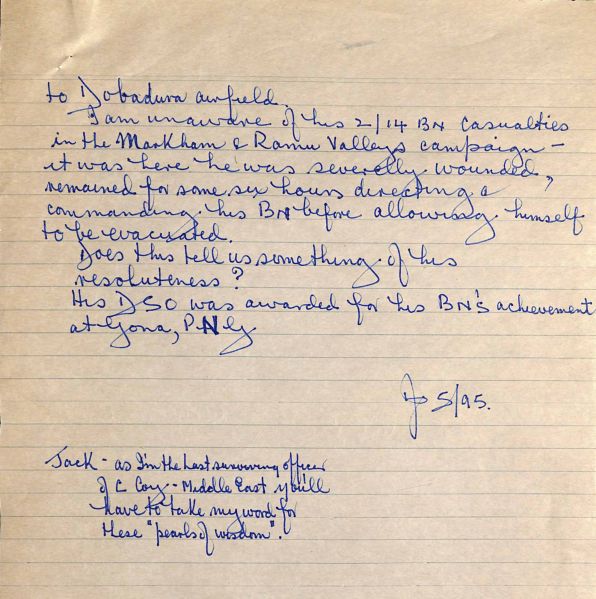 to Dobadura airfield.
I am unaware of his 2/14 BN casualties
in the Markham & Ramu Valleys campaign –
it was here he was severely wounded,
remained for some six hours directing &
commanding his BN before allowing himself
to be evacuated.
Does this tell us something of his
resoluteness?
His DSO was awarded for his BN's achievement
at Gona, PNG
5/95.
Jack - as I'm the last surviving officer
of C Coy - Middle East you'll
have to take my word for
these "pearls of wisdom".